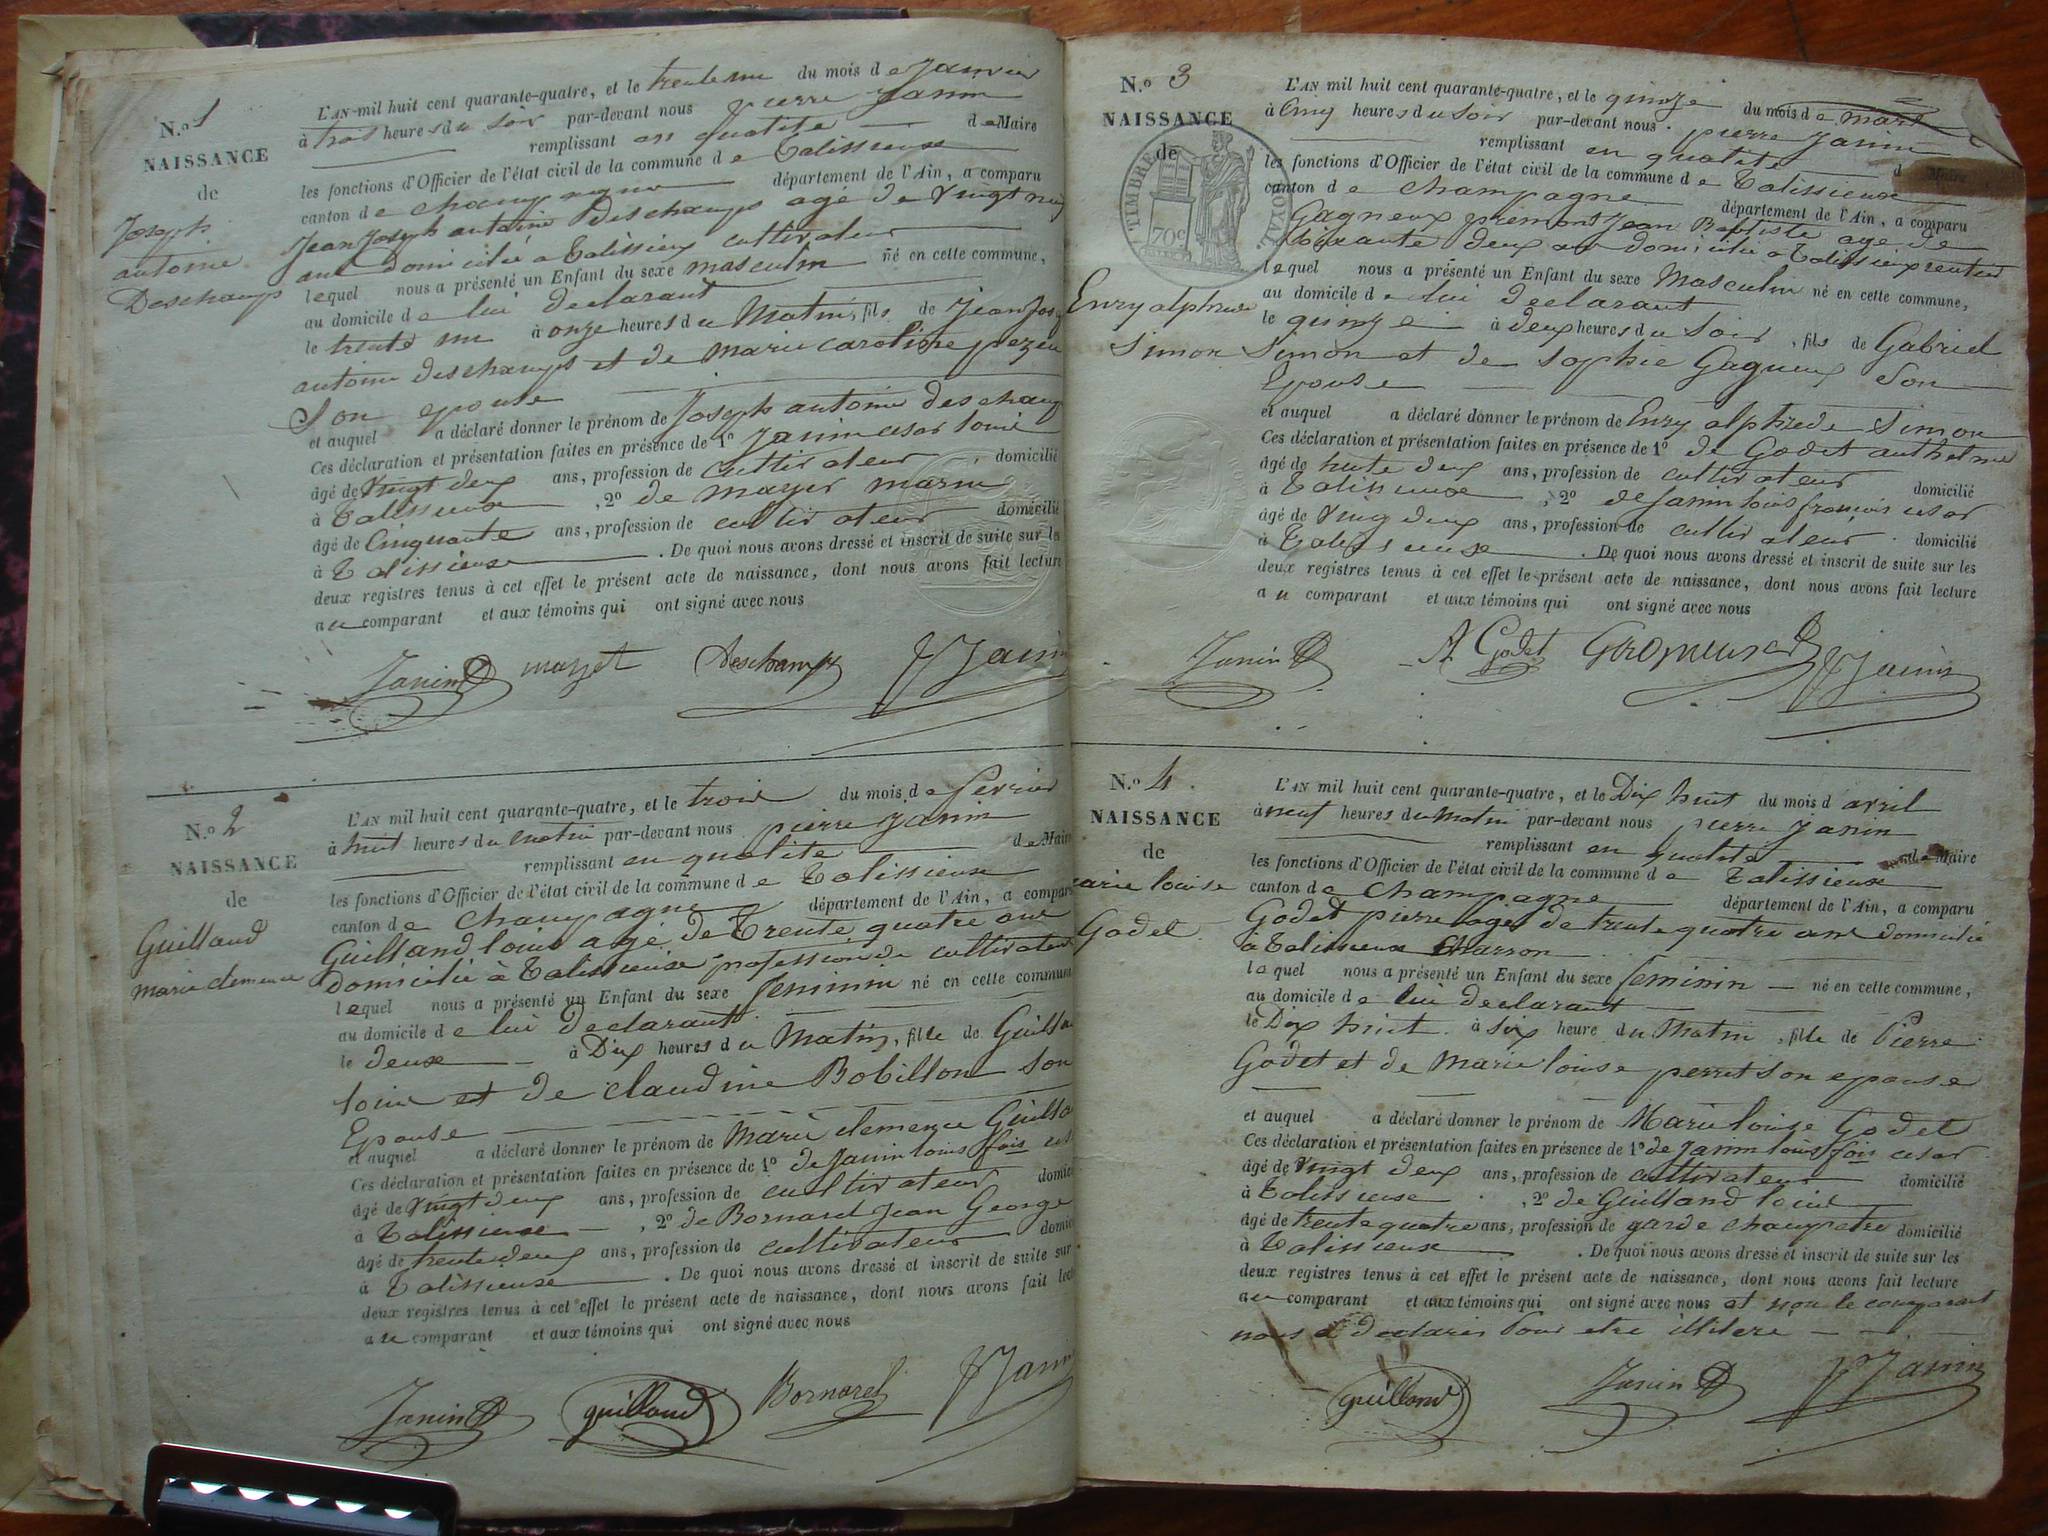 N.º 1
NAISSANCE
de
Joseph
antoine
Deschamps
L'AN mil huit cent quarante-quatre, et le trente un du mois de Janvier
à trois heures du soir par-devant nous pierre Janin
remplissant en qualité de Maire
les fonctions d'Officier de l'état civil de la commune de Talissieux
canton de champagne département de l'Ain, a comparu
Jean Joseph antoine Deschamps agé de vingt neuf
ans domicilié a talissieux cultivateur
lequel nous a présenté un Enfant du sexe masculin né en cette commune,
au domicile de lui declarant
le trente un à onze heures du Matin, fils de Jean Jos
antoine deschamps et de marie caroline pezeu
Son epouse
et auquel a déclaré donner le prénom de Joseph antoine deschamp
Ces déclaration et présentation faites en présence de 1º Janin cesar louis
âgé de vingt deux ans, profession de cultivateur, domicilié
à Talissieux, 2º de mayet marin
âgé de Cinquante ans, profession de cultivateur domicilié
à Talissieux. De quoi nous avons dressé et inscrit de suite sur les
deux registres tenus à cet effet le présent acte de naissance, dont nous avons fait lecture
au comparant et aux témoins qui ont signé avec nous
Janin mayet deschamps Janin
N.º 2
NAISSANCE
de
Guilland
marie clemence
L'AN mil huit cent quarante-quatre, et le trois du mois de fevrier
à huit heures du matin par-devant nous pierre Janin
remplissant en qualité de Maire
les fonctions d'Officier de l'état civil de la commune de Talissieux
canton de Champagne département de l'Ain, a comparu
Guilland louis agé de Trente quatre ans
domicilié à Talissieux profession de cultivateur
lequel nous a présenté un Enfant du sexe feminin né en cette commune
au domicile de lui declarant
le deux à Dix heures du Matin, fille de Guilla
louis et de claudine Bobillon son
Epouse
et auquel a déclaré donner le prénom de Marie clemence Guilla
Ces déclaration et présentation faites en présence de 1º de Janin louis fois ces
âgé de vingt deux ans, profession de cultivateur domici
à Talissieux, 2º de Bornarel Jean George
âgé de trente deux ans, profession de cultivateur domic
à Talissieux. De quoi nous avons dressé et inscrit de suite sur
deux registres tenus à cet effet le présent acte de naissance, dont nous avons fait lect
au comparant et aux témoins qui ont signé avec nous
Janin guilland Bornarel Janin
N.º 3
NAISSANCE
de
TIMBRE ROYAL
70 c
Enry alphrede
Simon
L'AN mil huit cent quarante-quatre, et le quinze du mois de mars
à Cinq heures du soir par-devant nous pierre Janin
remplissant en qualité de Maire
les fonctions d'Officier de l'état civil de la commune de Talissieux
canton de champagne département de l'Ain, a comparu
Gagneux Jean Baptiste agé de
soixante deux ans domicilié a Talissieux rentier
lequel nous a présenté un Enfant du sexe Masculin né en cette commune,
au domicile de lui declarant
le quinze à deux heures du Soir, fils de Gabriel
Simon et de sophie Gagneux Son
Epouse
et auquel a déclaré donner le prénom de Enry alphrede Simon
Ces déclaration et présentation faites en présence de 1º de Godet anthelme
âgé de trente deux ans, profession de cultivateur domicilié
à Talissieux, 2º de Janin louis françois cesar
âgé de vingt deux ans, profession de cultivateur domicilié
à Talissieux. De quoi nous avons dressé et inscrit de suite sur les
deux registres tenus à cet effet le présent acte de naissance, dont nous avons fait lecture
au comparant et aux témoins qui ont signé avec nous
Janin A Godet Janin
N.º 4
NAISSANCE
de
arie louise
Godet
L'AN mil huit cent quarante-quatre, et le Dix huit du mois d avril
à neuf heures du Matin par-devant nous pierre Janin
remplissant en qualité de Maire
les fonctions d'Officier de l'état civil de la commune de Talissieux
canton de Champagne département de l'Ain, a comparu
Godet pierre agé de trente quatre ans domicilié
à Talissieux charron
lequel nous a présenté un Enfant du sexe feminin né en cette commune,
au domicile de lui declarant
le Dix huit à six heure du Matin, fille de Pierre
Godet et de Marie louise perret son epouse
et auquel a déclaré donner le prénom de Marie louise Godet
Ces déclaration et présentation faites en présence de 1º de Janin louis fois cesar
âgé de vingt deux ans, profession de cultivateur domicilié
à Talissieux, 2º de Guilland louis
âgé de trente quatre ans, profession de garde champetre domicilié
à Talissieux. De quoi nous avons dressé et inscrit de suite sur les
deux registres tenus à cet effet le présent acte de naissance, dont nous avons fait lecture
au comparant et aux témoins qui ont signé avec nous et non le comparant
nous a declarer pour etre illiteré
guilland Janin Janin